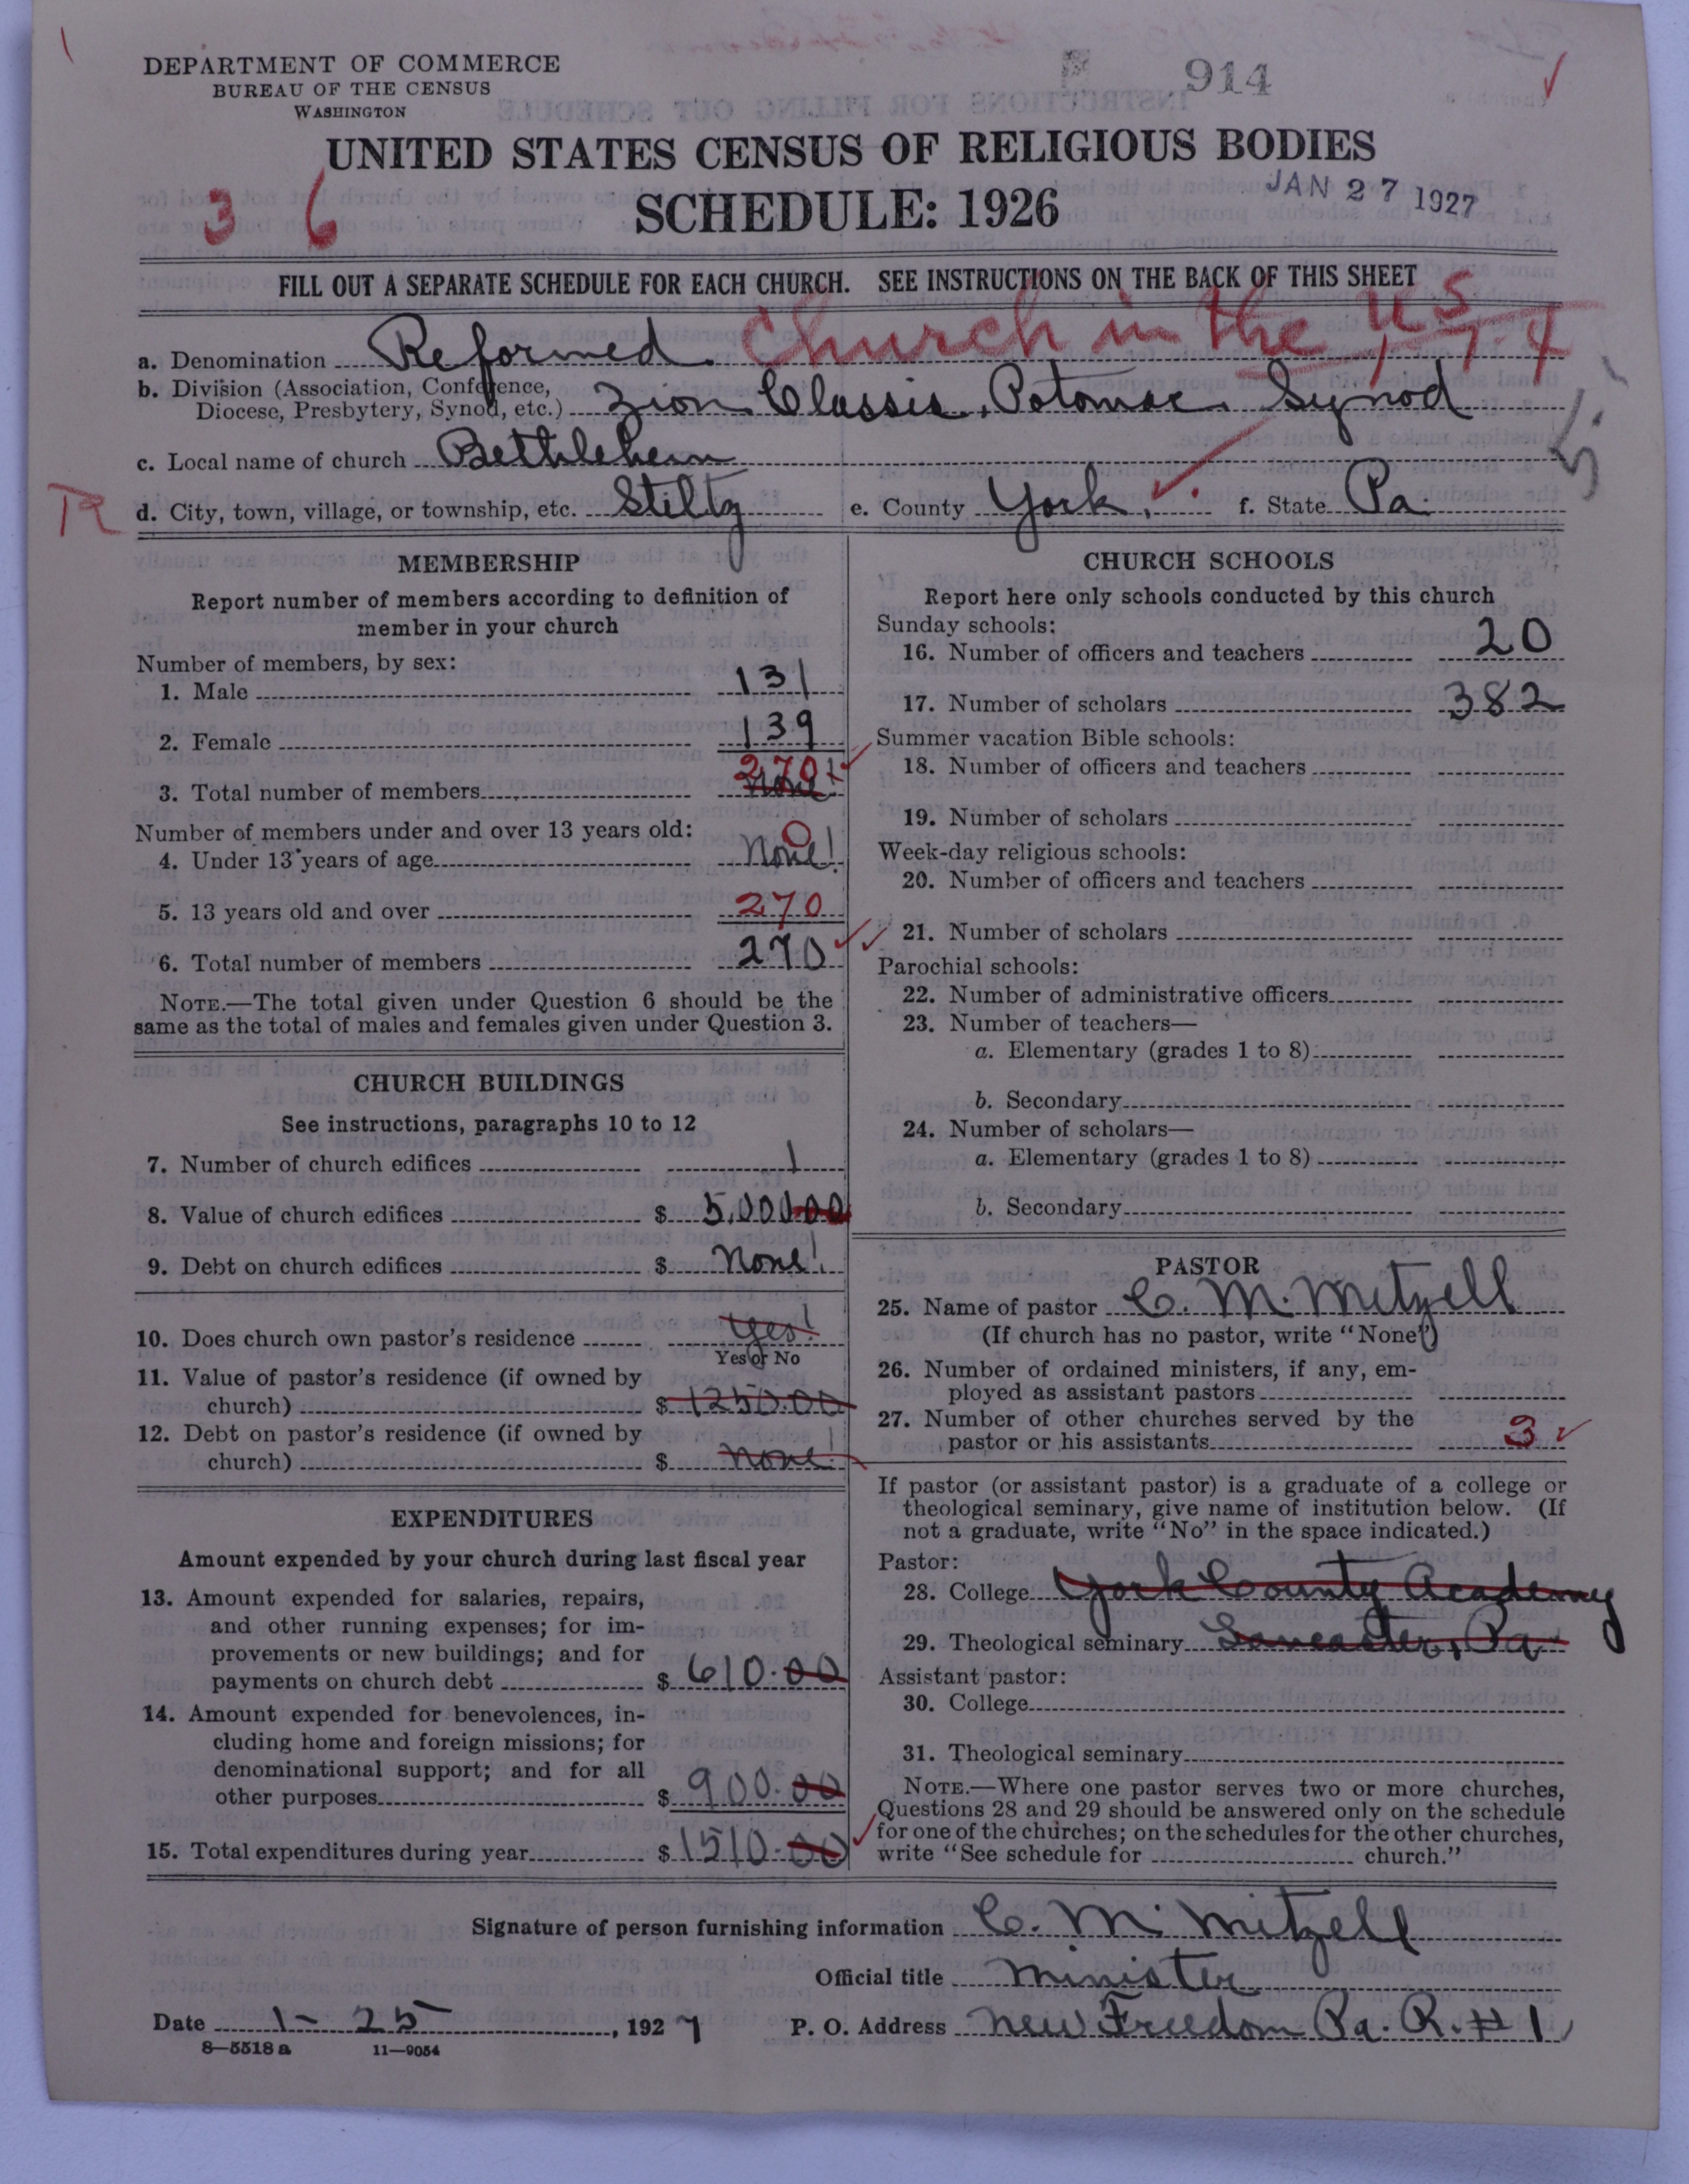 DEPARTMENT OF COMMERCE
BUREAU OF THE CENSUS
WASHINGTON
914
UNITED STATES CENSUS OF RELIGIOUS BODIES
SCHEDULE: 1926
JAN 27 1927
3 6
FILL OUT A SEPARATE SCHEDULE FOR EACH CHURCH. SEE INSTRUCTIONS ON THE BACK OF THIS SHEET
a. Denomination Reformed Church in the U.S.
b. Division (Association, Conference,
Diocese, Presbytery, Synod, etc.) Zion Classis, Potomac Synod
c. Local name of church Bethlehem
R
d. City, town, village, or township, etc. Stiltz e. County York. f. State Pa.
MEMBERSHIP
Report number of members according to definition of
member in your church
Number of members, by sex:
1. Male 131
2. Female 139
3. Total number of members 270 None!
Number of members under and over 13 years old:
4. Under 13 years of age 0 None!
5. 13 years old and over 270
6. Total number of members 270
NOTE.—The total given under Question 6 should be the
same as the total of males and females given under Question 3.
CHURCH BUILDINGS
See instructions, paragraphs 10 to 12
7. Number of church edifices 1
8. Value of church edifices $ 5,000.00
9. Debt on church edifices $ None!
10. Does church own pastor's residence Yes!
Yes or No
11. Value of pastor's residence (if owned by
church) $ 1250.00
12. Debt on pastor's residence (if owned by
church) $ None!
EXPENDITURES
Amount expended by your church during last fiscal year
13. Amount expended for salaries, repairs,
and other running expenses; for im-
provements or new buildings; and for
payments on church debt $ 610.00
14. Amount expended for benevolences, in-
cluding home and foreign missions; for
denominational support; and for all
other purposes $ 900.00
15. Total expenditures during year $ 1510.00
CHURCH SCHOOLS
Report here only schools conducted by this church
Sunday schools:
16. Number of officers and teachers 20
17. Number of scholars 382
Summer vacation Bible schools:
18. Number of officers and teachers
19. Number of scholars
Week-day religious schools:
20. Number of officers and teachers
21. Number of scholars
Parochial schools:
22. Number of administrative officers
23. Number of teachers—
a. Elementary (grades 1 to 8)
b. Secondary
24. Number of scholars—
a. Elementary (grades 1 to 8)
b. Secondary
PASTOR
25. Name of pastor C. M. Mitzell
(If church has no pastor, write "None")
26. Number of ordained ministers, if any, em-
ployed as assistant pastors
27. Number of other churches served by the
pastor or his assistants 3
If pastor (or assistant pastor) is a graduate of a college or
theological seminary, give name of institution below. (If
not a graduate, write "No" in the space indicated.)
Pastor:
28. College York County Academy
29. Theological seminary Lancaster, Pa
Assistant pastor:
30. College
31. Theological seminary
NOTE.—Where one pastor serves two or more churches,
Questions 28 and 29 should be answered only on the schedule
for one of the churches; on the schedules for the other churches,
write "See schedule for church."
Signature of person furnishing information C. M. Mitzell
Official title Minister
Date 1-25, 1927 P. O. Address New Freedom Pa. R. #1
8—5518a 11—9054